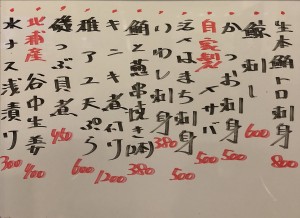 生本鮪トロ刺身 800
鯨刺し 600
かつお刺身 500
自家製〆サバ 500
はまち刺身 500
刺身 380
鮪と葱串焼き(2本) 380
キンキ煮付け 1200
稚アユ天ぷら 600
磯つぶ貝煮 480
北浦産谷中生姜 400
水ナス浅漬り 300